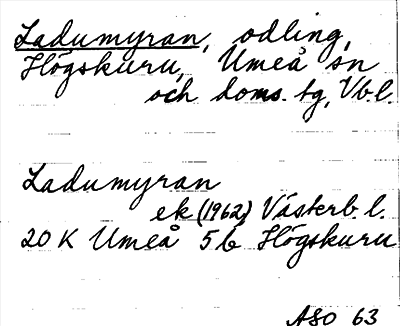 Ladumyran, odling,
Högskuru, Umeå sn
och doms. tg, Vb.l.
Ladumyran
ek (1962) Västerb. l.
20 K Umeå 5b Högskuru
ASO 63